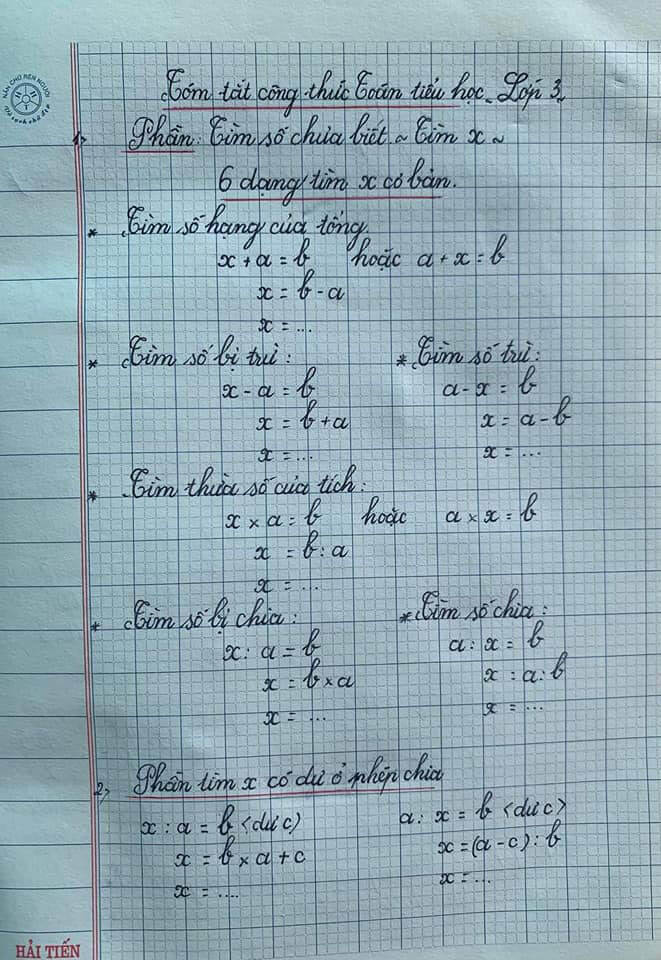 NÉN CHỮ RÈN NGƯỜI
Tóm tắt công thức Toán tiểu học ~ Lớp 3 ~
1, Phần: Tìm số chưa biết ~ Tìm x ~
6 dạng tìm x cơ bản.
* Tìm số hạng của tổng.
x + a = b hoặc a + x = b
x = b - a
x = ...
* Tìm số bị trừ: * Tìm số trừ:
x - a = b a - x = b
x = b + a x = a - b
x = ... x = ...
* Tìm thừa số của tích:
x × a = b hoặc a × x = b
x = b : a
x = ...
* Tìm số bị chia: * Tìm số chia:
x : a = b a : x = b
x = b × a x : a : b
x = ... x = ...
2, Phần tìm x có dư ở phép chia
x : a = b <dư c) a : x = b <dư c>
x = b × a + c x = (a - c) : b
x = .... x = ...
HẢI TIẾN